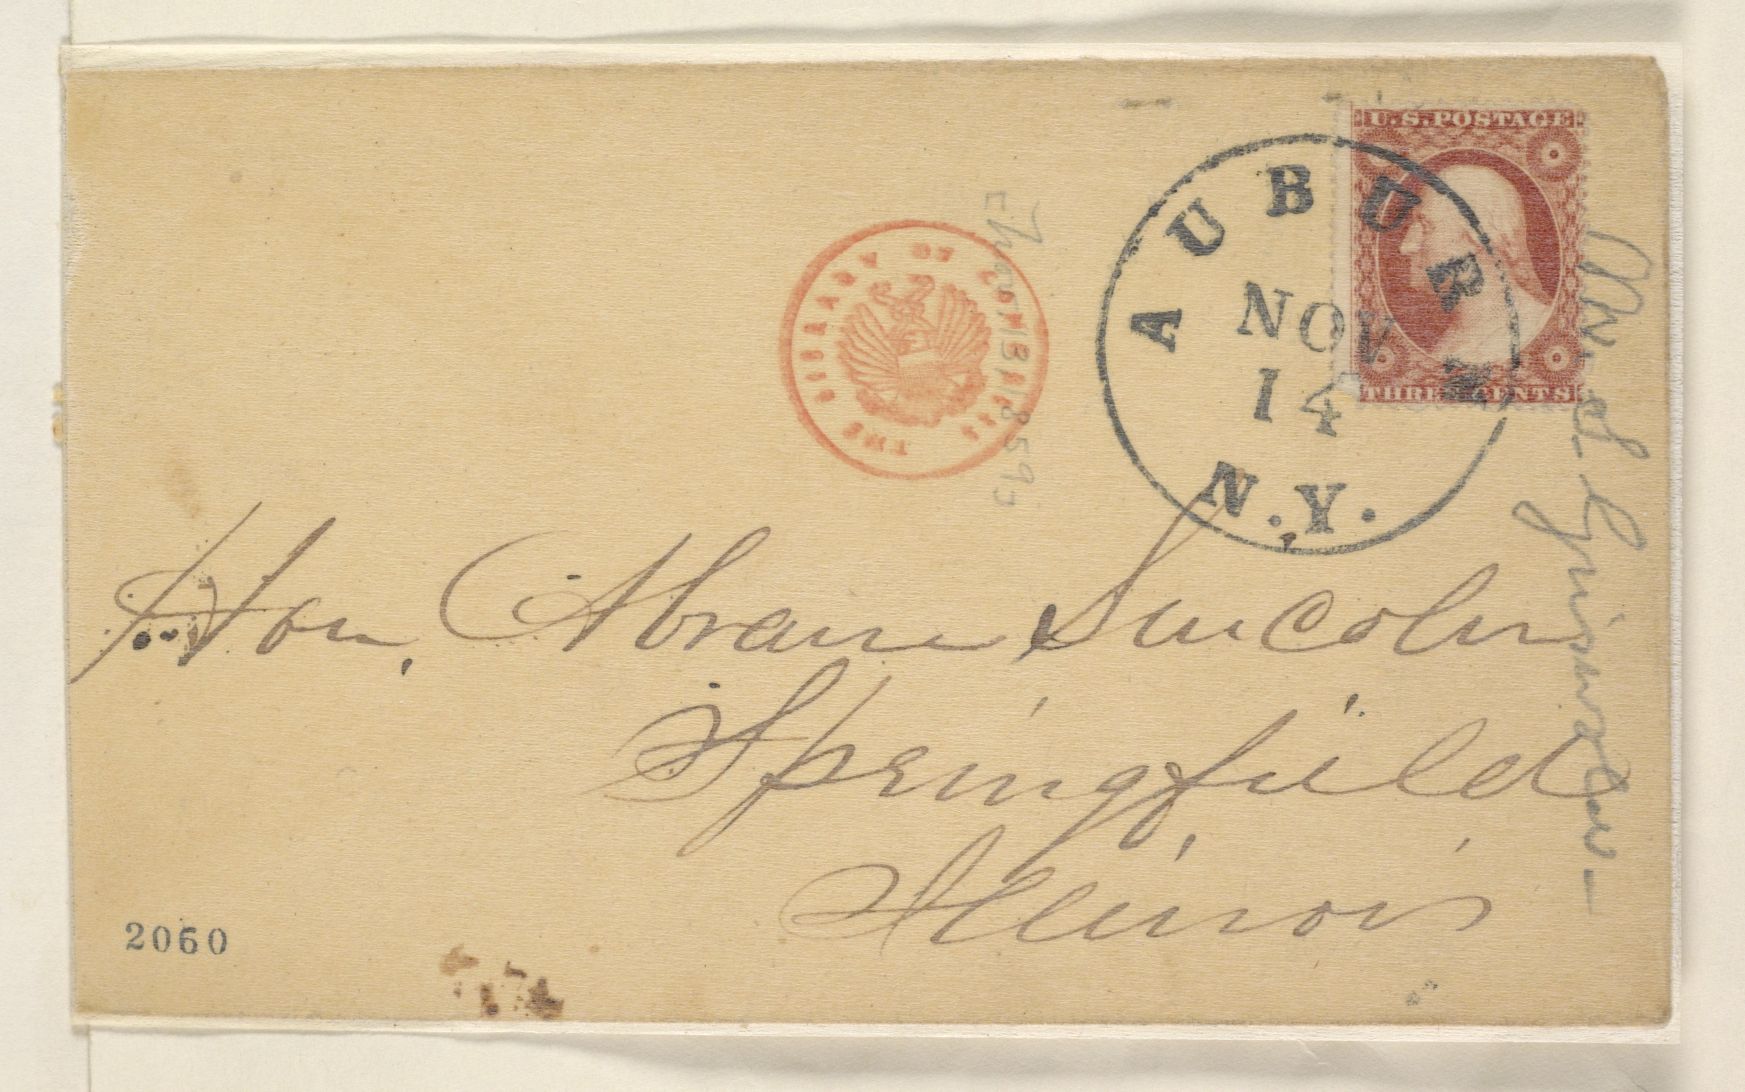 U.S. POSTAGE
THREE CENTS
AUBURN
NOV
14
N.Y.
THE LIBRARY OF CONGRESS
[Nov 13, 1859]
Hon. Abram Lincoln
Springfield
Illinois
2060